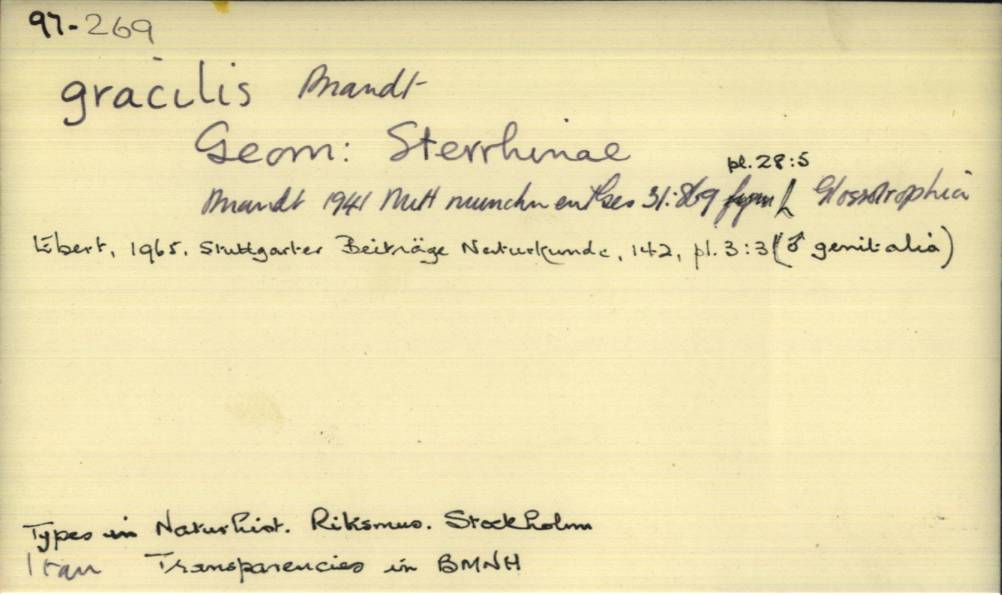 97-269
gracilis Brandt
Geom: Sterrhinae
pl. 28:5
Brandt 1941 Mitt munchn ent Ges 31: 869 Glossotrophia
Ebert, 1965. Stuttgarter Beiträge Naturkunde, 142, pl. 3:3 (♂ genitalia)
Types in Naturhist. Riksmus. Stockholm
Iran Transparencies in BMNH